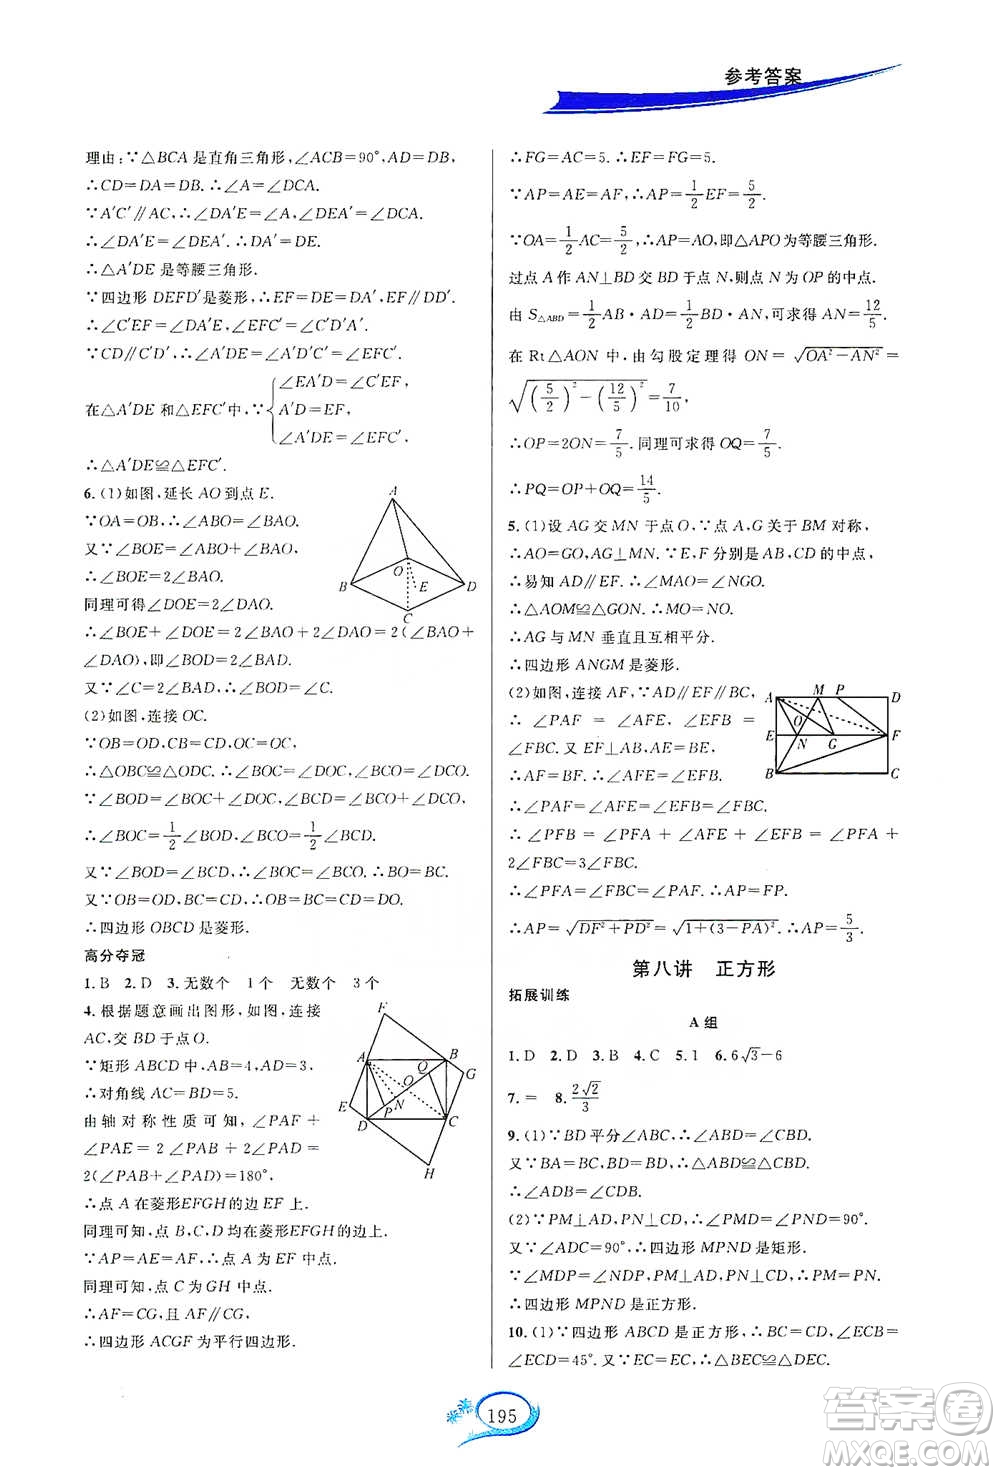 参考答案
理由:∵△BCA 是直角三角形,∠ACB=90°,AD=DB,
∴CD=DA=DB. ∴∠A=∠DCA.
∵A′C′∥AC,∴∠DA′E=∠A,∠DEA′=∠DCA.
∴∠DA′E=∠DEA′. ∴DA′=DE.
∴△A′DE 是等腰三角形.
∵四边形 DEFD′是菱形,∴EF=DE=DA′,EF∥DD′.
∴∠C′EF=∠DA′E,∠EFC′=∠C′D′A′.
∵CD∥C′D′,∴∠A′DE=∠A′D′C′=∠EFC′.
在△A′DE 和△EFC′中,∵{∠EA′D=∠C′EF,
A′D=EF,
∠A′DE=∠EFC′,
∴△A′DE≌△EFC′.
6. (1)如图,延长 AO 到点 E.
∵OA=OB,∴∠ABO=∠BAO.
又∵∠BOE=∠ABO+∠BAO,
∴∠BOE=2∠BAO.
同理可得∠DOE=2∠DAO.
∴∠BOE+∠DOE=2∠BAO+2∠DAO=2(∠BAO+
∠DAO),即∠BOD=2∠BAD.
又∵∠C=2∠BAD,∴∠BOD=∠C.
(2)如图,连接 OC.
∵OB=OD,CB=CD,OC=OC,
∴△OBC≌△ODC. ∴∠BOC=∠DOC,∠BCO=∠DCO.
∵∠BOD=∠BOC+∠DOC,∠BCD=∠BCO+∠DCO,
∴∠BOC=1/2∠BOD,∠BCO=1/2∠BCD.
又∵∠BOD=∠BCD,∴∠BOC=∠BCO. ∴OB=BC.
又∵OB=OD,BC=CD,∴OB=BC=CD=DO.
∴四边形 OBCD 是菱形.
A
O
E
B
D
C
高分夺冠
1. B 2. D 3. 无数个 1 个 无数个 3 个
4. 根据题意画出图形,连接
AC,交 BD 于点 O.
∵矩形 ABCD 中,AB=4,AD=3,
∴对角线 AC=BD=5.
由轴对称性质可知,∠PAF+
∠PAE=2∠PAB+2∠PAD=
2(∠PAB+∠PAD)=180°,
∴点 A 在菱形EFGH的边 EF 上.
同理可知,点 B,C,D 均在菱形EFGH的边上.
∵AP=AE=AF,∴点 A 为 EF 中点.
同理可知,点 C 为 GH 中点.
∴AF=CG,且 AF∥CG.
∴四边形 ACGF 为平行四边形.
F
A
B
Q
G
O
E
P
N
D
C
H
∴FG=AC=5. ∴EF=FG=5.
∵AP=AE=AF,∴AP=1/2EF=5/2.
∵OA=1/2AC=5/2,∴AP=AO,即△APO为等腰三角形.
过点 A 作 AN⊥BD 交 BD 于点 N,则点 N 为 OP 的中点.
由 S△ABD=1/2AB·AD=1/2BD·AN,可求得 AN=12/5.
在 Rt△AON 中,由勾股定理得 ON=√(OA²−AN²)=
√((5/2)²−(12/5)²)=7/10,
∴OP=2ON=7/5. 同理可求得 OQ=7/5.
∴PQ=OP+OQ=14/5.
5. (1)设 AG 交 MN 于点 O,∵点 A,G 关于 BM 对称,
∴AO=GO,AG⊥MN. ∵E,F 分别是 AB,CD 的中点,
∴易知 AD∥EF. ∴∠MAO=∠NGO.
∴△AOM≌△GON. ∴MO=NO.
∴AG 与 MN 垂直且互相平分.
∴四边形 ANGM 是菱形.
(2)如图,连接 AF,∵AD∥EF∥BC,
∴∠PAF=∠AFE,∠EFB=
∠FBC. 又 EF⊥AB,AE=BE,
∴AF=BF. ∴∠AFE=∠EFB.
∵∠PFB=3∠FBC.
∴∠PFB=∠PFA+∠AFE+∠EFB=∠PFA+
2∠FBC=3∠FBC.
∴∠PFA=∠FBC=∠PAF. ∴AP=FP.
∴AP=√(DF²+PD²)=√(1+(3−PA)²). ∴AP=5/3.
A
M
P
D
O
E
N
G
F
B
C
第八讲 正方形
拓展训练
A 组
1. D 2. D 3. B 4. C 5. 1 6. 6√3−6
7. = 8. 2√2/3
9. (1)∵BD平分∠ABC,∴∠ABD=∠CBD.
又∵BA=BC,BD=BD,∴△ABD≌△CBD.
∴∠ADB=∠CDB.
(2)∵PM⊥AD,PN⊥CD,∴∠PMD=∠PND=90°.
又∵∠ADC=90°,∴四边形 MPND 是矩形.
∵∠MDP=∠NDP,PM⊥AD,PN⊥CD,∴PM=PN.
∴四边形 MPND 是正方形.
10. (1)∵四边形 ABCD 是正方形,∴BC=CD,∠ECB=
∠ECD=45°. 又∵EC=EC,∴△BEC≌△DEC.
195
答案圈
MXQE.COM